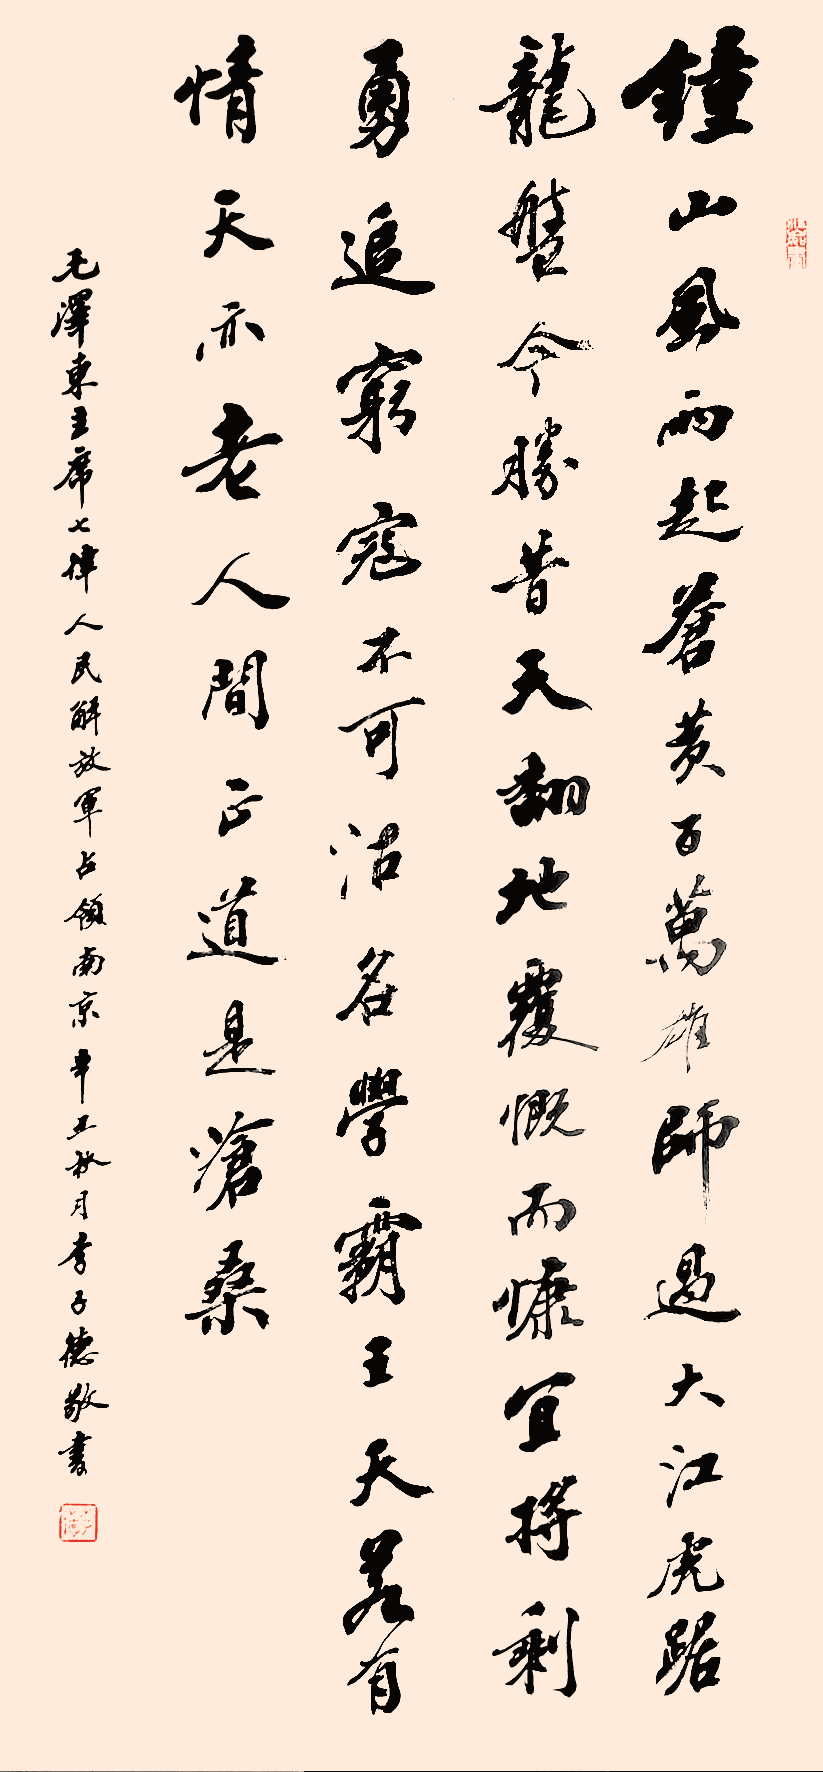 鐘山風雨起蒼黃百萬雄師過大江虎踞
龍盤今勝昔天翻地覆慨而慷宜將剩
勇追窮寇不可沽名學霸王天若有
情天亦老人間正道是滄桑
毛澤東主席七律人民解放軍占領南京辛丑秋月李子德敬書